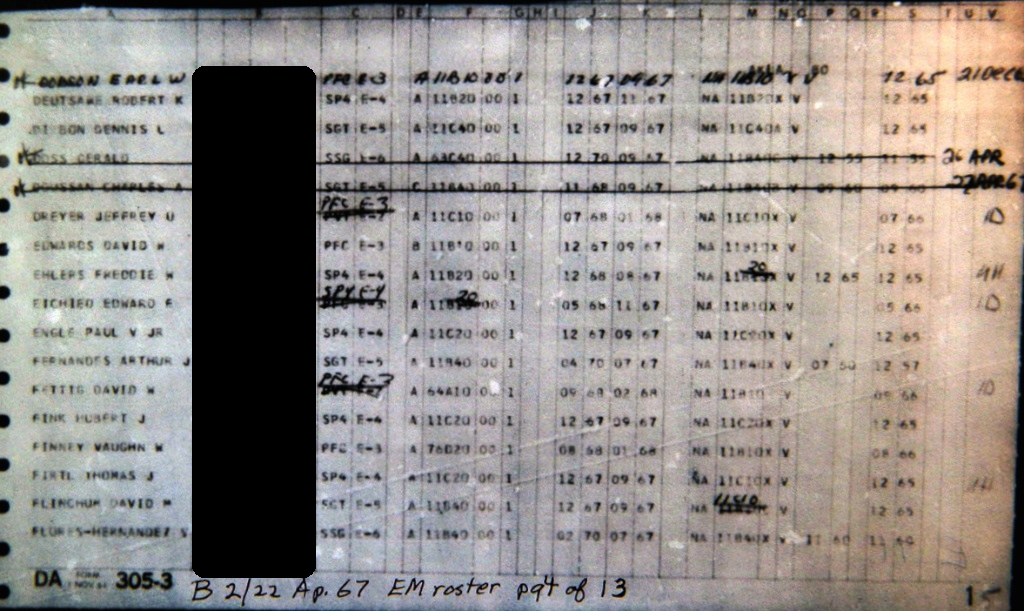 A B C D E F G H I J K L M N O P Q R S T U V
DODSON EARL W PFC E-3 A 11B10 00 1 12 67 09 67 NA 11B10 V 12 65 21DEC6
DEUTSAHE ROBERT K SP4 E-4 A 11B20 00 1 12 67 11 67 NA 11B20X V 12 65
DI BON DENNIS L SGT E-5 A 11C40 00 1 12 67 09 67 NA 11C40X V 12 65
DOSS GERALD SSG E-6 A 63C40 00 1 12 70 09 67 NA V 12 55 11 55 26 APR
DOUSSAN CHARLES A SGT E-5 C 11B40 00 1 11 68 09 67 NA V 09 60 09 60 22APR67
PFC E-3
DREYER JEFFREY U A 11C10 00 1 07 68 01 68 NA 11C10X V 07 66 1D
EDWARDS DAVID W PFC E-3 B 11B10 00 1 12 67 09 67 NA 11B10X V 12 65
EHLERS FREDDIE W SP4 E-4 A 11B20 00 1 12 68 08 67 NA 11B 20 X V 12 65 12 65 4H
SP4 E-4 20
EICHIED EDWARD F A 11B 00 1 05 68 11 67 NA 11B10X V 05 66 1D
ENGLE PAUL V JR SP4 E-4 A 11C20 00 1 12 67 09 67 NA 11C20X V 12 65
FERNANDES ARTHUR J SGT E-5 A 11B40 00 1 04 70 07 67 NA 11B40X V 07 50 12 57
PFC E-3
FETTIG DAVID W A 64A10 00 1 09 68 02 68 NA 11B10 V 09 66 1D
FINK HUBERT J SP4 E-4 A 11C20 00 1 12 67 09 67 NA 11C20X V 12 65
FINNEY VAUGHN W PFC E-3 A 76D20 00 1 08 68 01 68 NA 11B10X V 08 66
FIRTL THOMAS J SP4 E-4 A 11C20 00 1 12 67 09 67 NA 11C10X V 12 65
FLINCHUM DAVID M SGT E-5 A 11B40 00 1 12 67 09 67 NA V 12 65
FLORES-HERNANDEZ S SSG E-6 A 11B40 00 1 02 70 07 67 NA 11B40X V 11 60 11 60
DA FORM 1 NOV 64 305-3 B 2/22 Ap. 67 EM roster pg4 of 13
15